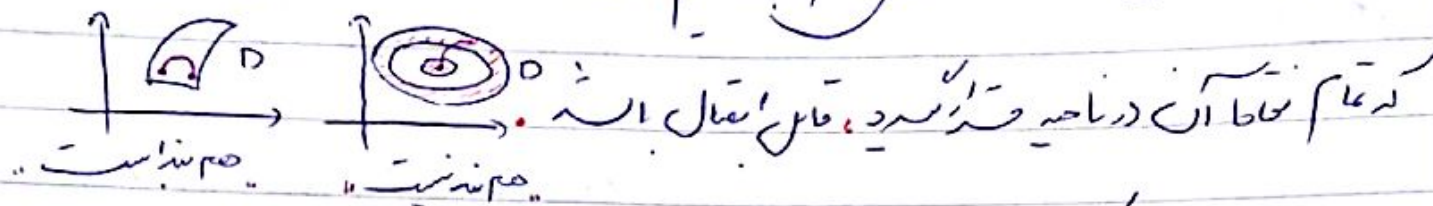 که تمام نقاط آن در ناحیه قرار گیرد، قابل اتصال باشد.
D
D
"همبند نیست"
"همبند است"